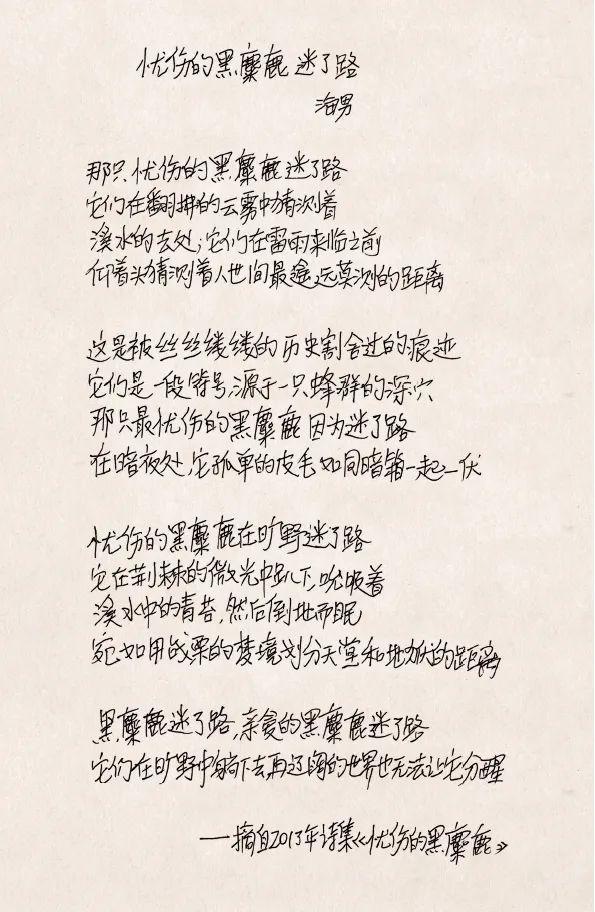 忧伤的黑麋鹿迷了路
海男
那只忧伤的黑麋鹿迷了路
它们在翻拂的云雾中猜测着
溪水的去处;它们在雷雨来临之前
仰着头猜测着人世间最遥远莫测的距离
这是被丝丝缕缕的历史割舍过的痕迹
它们是一段符号,源于一只蜂群的深穴
那只最忧伤的黑麋鹿因为迷了路
在暗夜处,它孤单的皮毛如同暗箱一起一伏
忧伤的黑麋鹿在旷野迷了路
它在荆棘的微光中趴下,吮吸着
溪水中的青苔,然后倒地而眠
宛如用战栗的梦境划分天堂和地狱的距离
黑麋鹿迷了路,亲爱的黑麋鹿迷了路
它们在旷野中躺下去,再辽阔的世界也无法让它分醒
——摘自2013年诗集《忧伤的黑麋鹿》